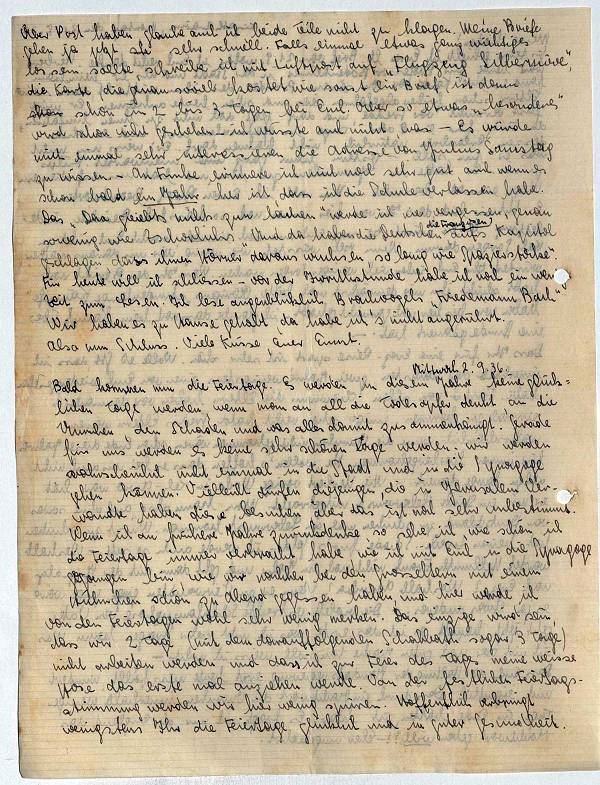 Über Post haben glaube auch ich beide Teile nicht zu klagen. Meine Briefe
gehen ja jetzt sehr schnell. Falls einmal etwas ganz wichtiges
los sein sollte schreibe ich mit Luftpost auf „Flugzeug Silbermöve",
die Karte die genau soviel kostet wie sonst ein Brief ist dann
schon in 2 bis 3 Tagen bei Euch. Aber so etwas „besonderes"
wird schon nicht geschehen – ich wüsste auch nicht was – Es würde
mich einmal sehr interessieren die Adresse von Samstag
zu wissen. – An Funke erinnere ich mich noch sehr gut, auch wenn es
schon bald ein Jahr her ist, dass ich die Schule verlassen habe.
Das „Daa giebts nichts zum lachen" werde ich nie vergessen, genau
sowenig wie „Und da haben die Deutschen die Franzosen aufs Kapitol
geschlagen dass ihnen Hörner daraus wuchsen so lang wie Spazierstöcke".
Für heute will ich schliessen – vor der Iwrithstunde habe ich noch ein wenig
Zeit zum Lesen. Ich lese augenblicklich Brachvogels „Friedemann Bach".
Wir haben es zu Hause gehabt, da habe ich's nicht angerührt.
Also nun Schluss. Viele Küsse Euer Ernst.
Mittwoch 2.9.36.
Bald kommen nun die Feiertage. Es werden in diesem Jahre keine glück-
lichen Tage werden, wenn man an all die Todesopfer denkt an die
Unruhen den Schaden und was alles damit zusammenhängt. Gerade
für uns werden es keine sehr schönen Tage werden. Wir werden
wahrscheinlich nicht einmal in die Stadt und in die Synagoge
gehen können. Vielleicht dürfen diejenigen, die in Jerusalem Ver-
wandte haben diese besuchen aber das ist noch sehr unbestimmt.
Wenn ich an frühere Jahre zurückdenke so sehe ich, wie schön ich
die Feiertage immer verbracht habe wie ich mit Euch in die Synagoge
gegangen bin wie wir nachher bei den Grosseltern mit einem
schön zu Abend gegessen haben und hier werde ich
von den Feiertagen wohl sehr wenig merken. Das einzige wird sein
dass wir 2 Tage (mit dem darauffolgenden Schabbath sogar 3 Tage)
nicht arbeiten werden und dass ich zur Feier des Tages meine weisse
Hose das erste mal anziehen werde. Von der festlichen Feiertags-
stimmung werden wir hier wenig spüren. Hoffentlich verbringt
wenigstens Ihr die Feiertage glücklich und in guter Gesundheit.